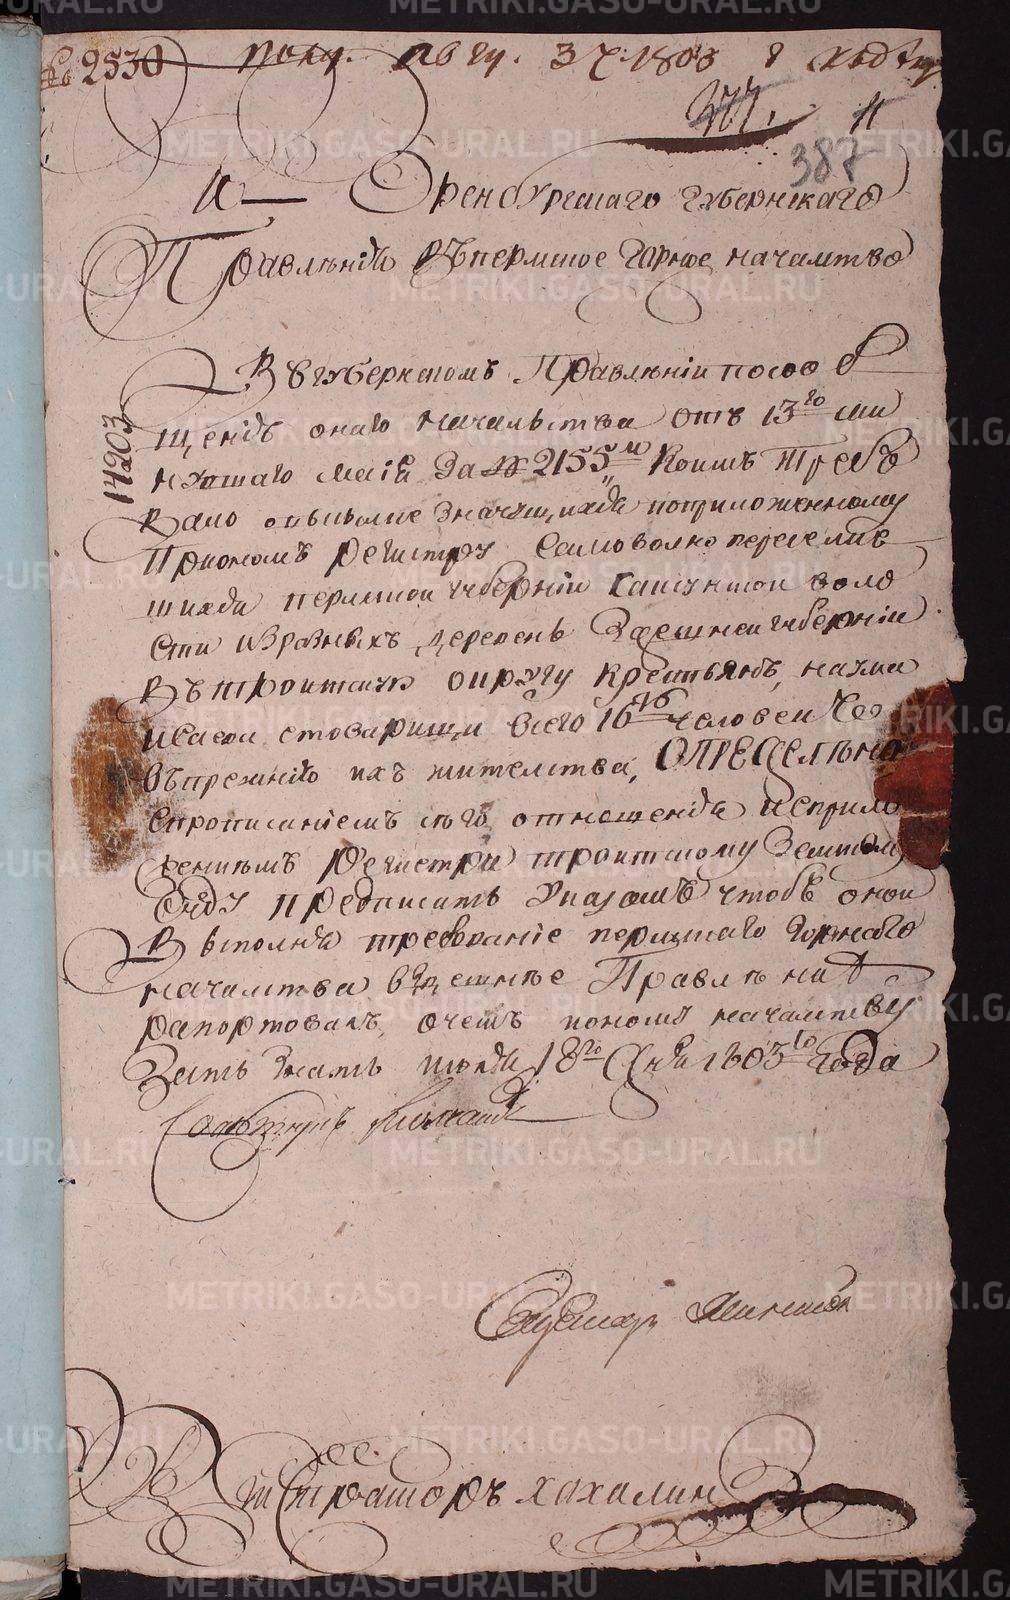 № 2530 полу. Авгу. 3 ч. 1803
377. 11
387
Из Оренбургскаго губернскаго
Правления въ пермское Горное начальство
14203
В Губернскомъ Правлении по соо б
щению онаго начальства отъ 13го ми
нувшаго маия за № 2155м коимъ Требо
вано о высылке значущихся по приложенному
При ономъ регистру самовольно переселив
шихся пермской губернии волости
сти из разныхъ деревень Здешней губернии
Въ троицкую округу крестьянъ,
Исаева с товарищи всего 16ти человек
въ прежние ихъ жительства, ОПРЕДеленно
с прописаниемъ сего отношения и с прило
жениемъ регистра троицкому Земском
суду предписать указомъ чтобъ оной
Выполня требование пермскаго Горнаго
начальства в здешнее Правление
рапортовалъ, о чемъ и оному начальству
дать знать июля 18го дня 1803го года
Советникъ
Секретарь
Регистраторъ Хахалин